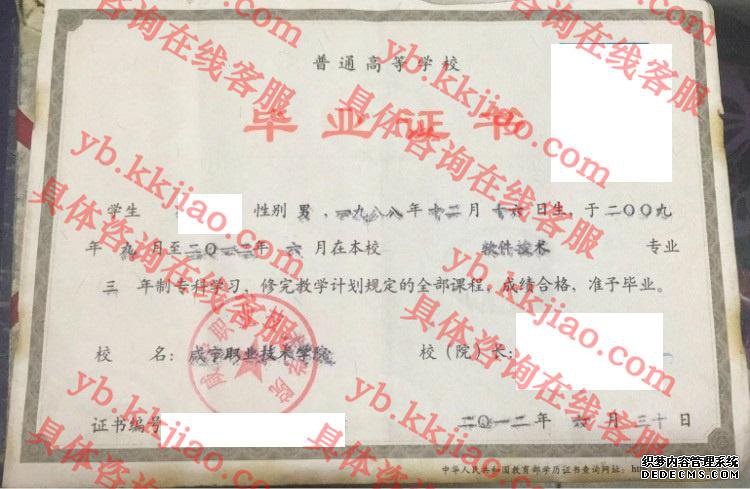 普通高等学校
毕业证书
学生 性别 男，一九八八年十二月十六日生，于二〇〇九
年 九 月至二〇一二年 六 月在本校 软件技术 专业
三 年制专科学习，修完教学计划规定的全部课程，成绩合格，准予毕业。
校 名：咸宁职业技术学院 校（院）长：
证书编号 二〇一二年 六 月 三十 日
中华人民共和国教育部学历证书查询网址：
yb.kkjiao.com
具体咨询在线客服
yb.kkjiao.com
具体咨询在线客服
yb.kkjiao.com
具体咨询在线客服
yb.kkjiao.com
具体咨询在线客服
yb.kkjiao.com
具体咨询在线客服
织梦内容管理系统
DEDECMS.COM